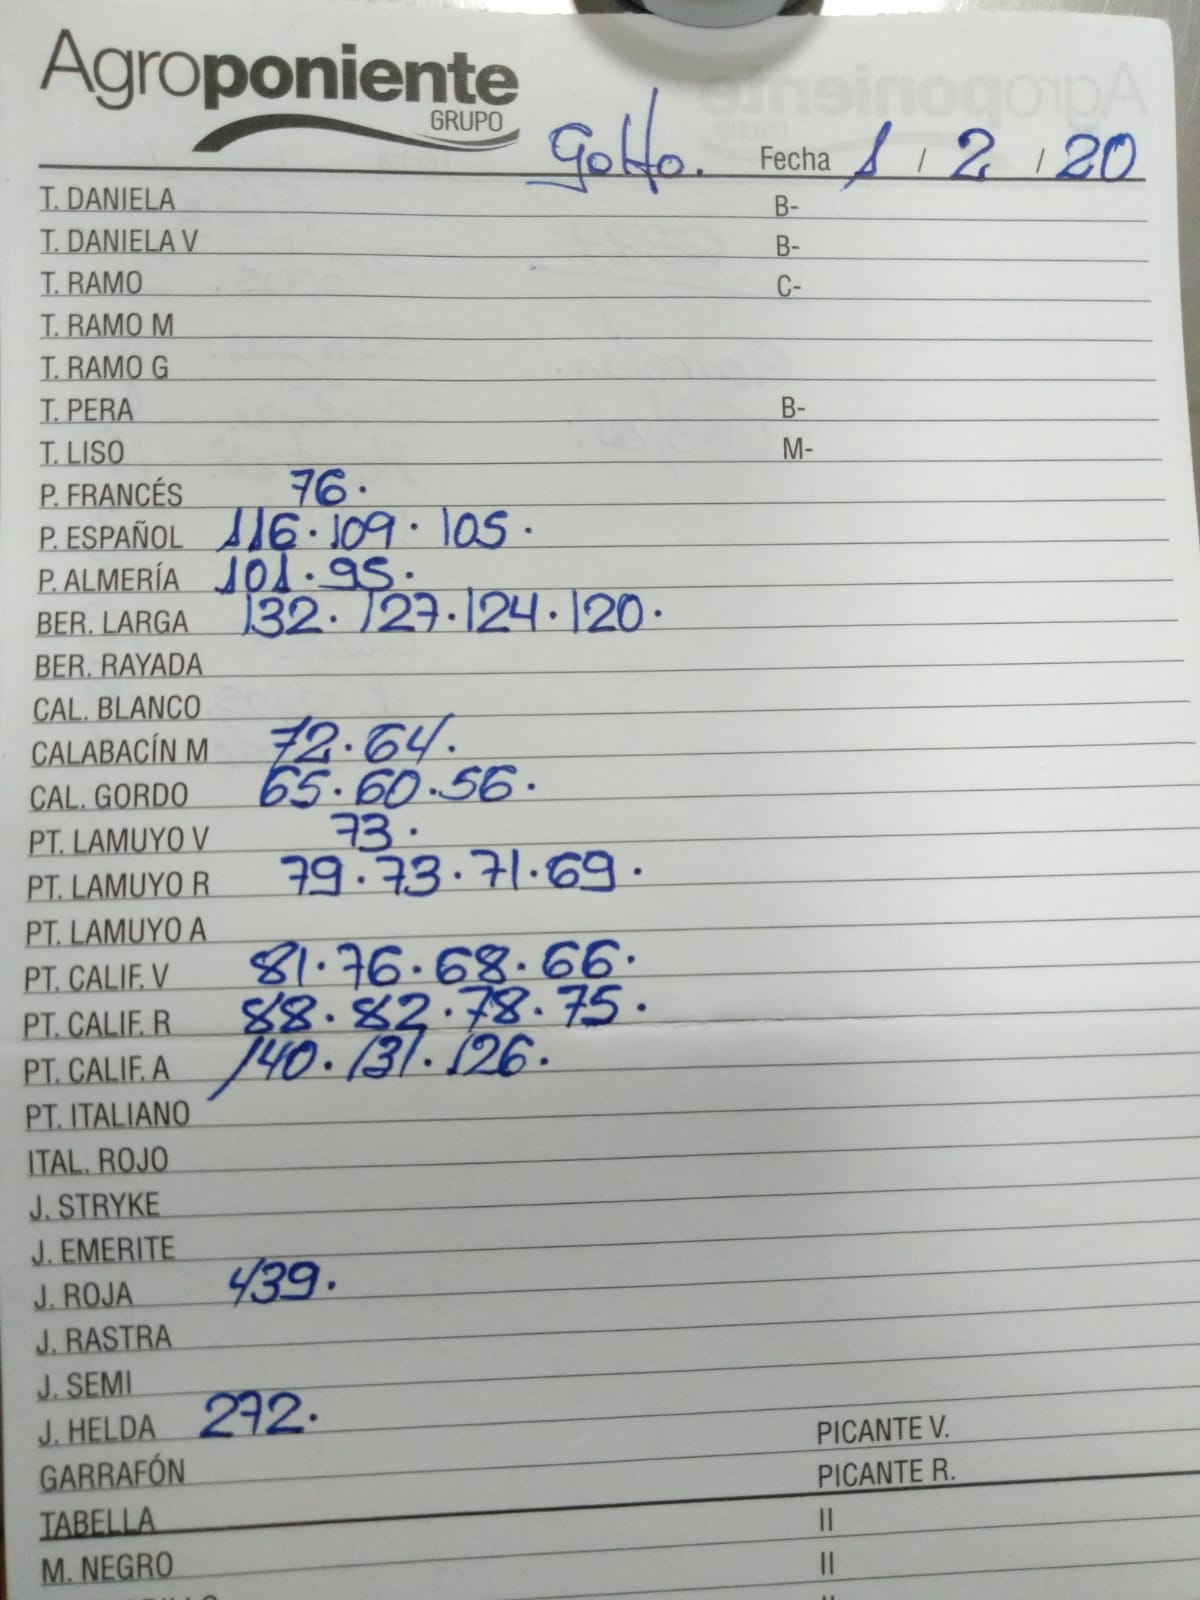 Agroponiente
GRUPO
Golfo. Fecha 1 / 2 / 20
T. DANIELA B-
T. DANIELA V B-
T. RAMO C-
T. RAMO M
T. RAMO G
T. PERA B-
T. LISO M-
P. FRANCÉS 76.
P. ESPAÑOL 116. 109. 105.
P. ALMERÍA 101. 95.
BER. LARGA 132. 127. 124. 120.
BER. RAYADA
CAL. BLANCO
CALABACÍN M 72. 64.
CAL. GORDO 65. 60. 56.
PT. LAMUYO V 73.
PT. LAMUYO R 79. 73. 71. 69.
PT. LAMUYO A
PT. CALIF. V 81. 76. 68. 66.
PT. CALIF. R 88. 82. 78. 75.
PT. CALIF. A 140. 131. 126.
PT. ITALIANO
ITAL. ROJO
J. STRYKE
J. EMERITE
J. ROJA 439.
J. RASTRA
J. SEMI
J. HELDA 272. PICANTE V.
GARRAFÓN PICANTE R.
TABELLA II
M. NEGRO II